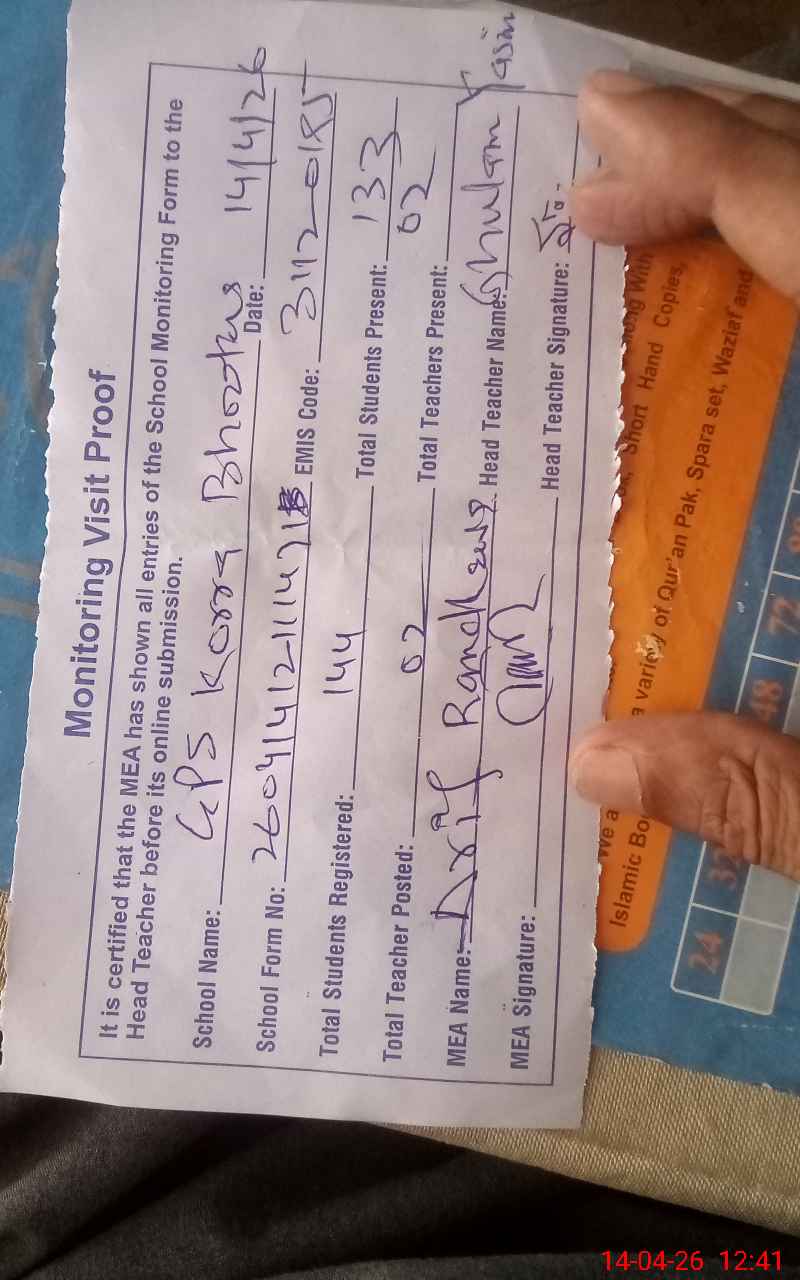 Monitoring Visit Proof
It is certified that the MEA has shown all entries of the School Monitoring Form to the
Head Teacher before its online submission.
School Name: GPS Korra Bhootus Date: 14/4/26
School Form No: EMIS Code: 31120185
Total Students Registered: 144 Total Students Present: 133
Total Teacher Posted: 02 Total Teachers Present: 02
MEA Name: Arif Head Teacher Name: Ghulam Yasin
MEA Signature: Head Teacher Signature:
We a
Short Hand Copies,
Islamic Bo a variety of Qur'an Pak, Spara set, Waziaf and
24 32 48 72
14-04-26 12:41